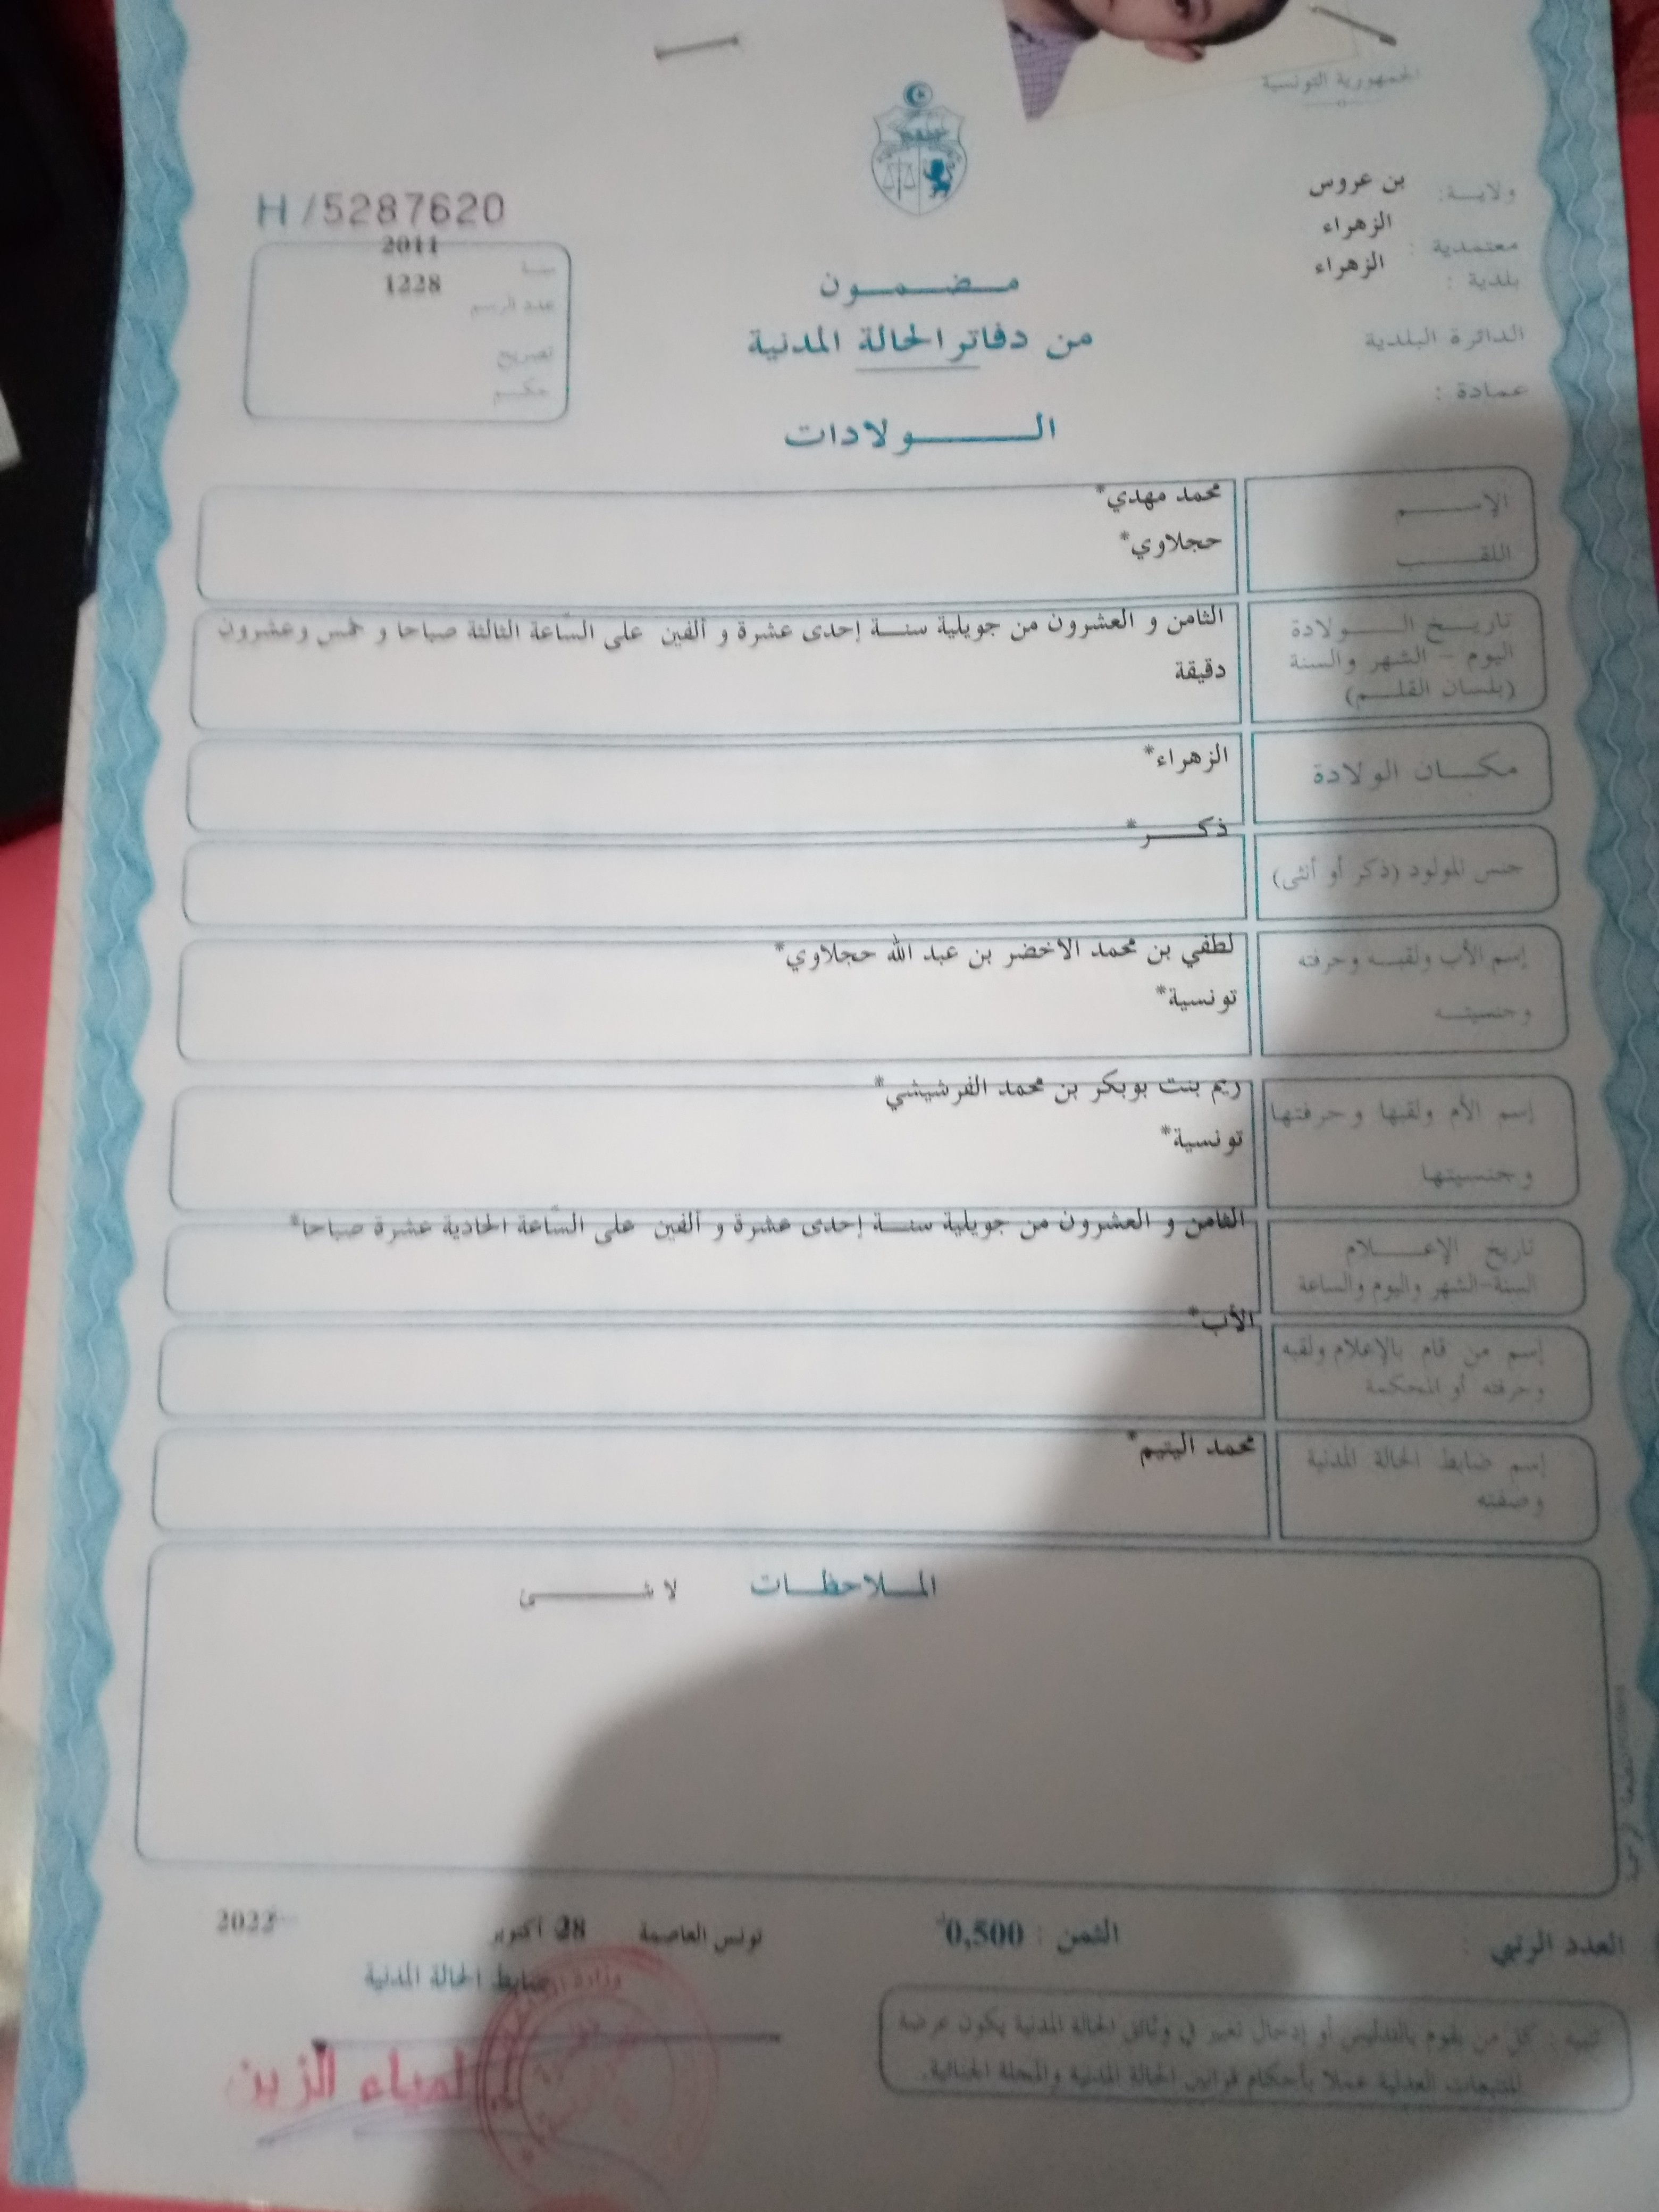 الجمهورية التونسية
ولاية: بن عروس
معتمدية : الزهراء
بلدية : الزهراء
الدائرة البلدية
عمادة :
H/5287620
سنة 2011
عدد الرسم 1228
تصريح
حكم
مضمون
من دفاتر الحالة المدنية
الولادات
الإسم محمد مهدي*
اللقب حجلاوي*
تاريخ الولادة
اليوم - الشهر والسنة
(بلسان القلم)
الثامن و العشرون من جويلية سنة إحدى عشرة و ألفين على السّاعة الثالثة صباحا و خمس وعشرون
دقيقة
مكان الولادة الزهراء*
جنس المولود (ذكر أو أنثى) ذكر*
إسم الأب ولقبه وحرفته لطفي بن محمد الاخضر بن عبد الله حجلاوي*
وجنسيته تونسية*
إسم الأم ولقبها وحرفتها ريم بنت بوبكر بن محمد الفرشيشي*
وجنسيتها تونسية*
تاريخ الإعلام
السنة-الشهر واليوم والساعة
الثامن و العشرون من جويلية سنة إحدى عشرة و ألفين على السّاعة الحادية عشرة صباحا*
إسم من قام بالإعلام ولقبه
وحرفته أو المحكمة
الأب*
إسم ضابط الحالة المدنية
وصفته
محمد اليتيم*
الملاحظات لا شئ
العدد الرتبي :
الثمن : 0,500د
تونس العاصمة 28 أكتوبر 2022
ضابط الحالة المدنية
لمياء الزين
تنبيه : كل من يقوم بالتدليس أو إدخال تغيير في وثائق الحالة المدنية يكون عرضة
للتتبعات العدلية عملا بأحكام قوانين الحالة المدنية والمجلة الجنائية.